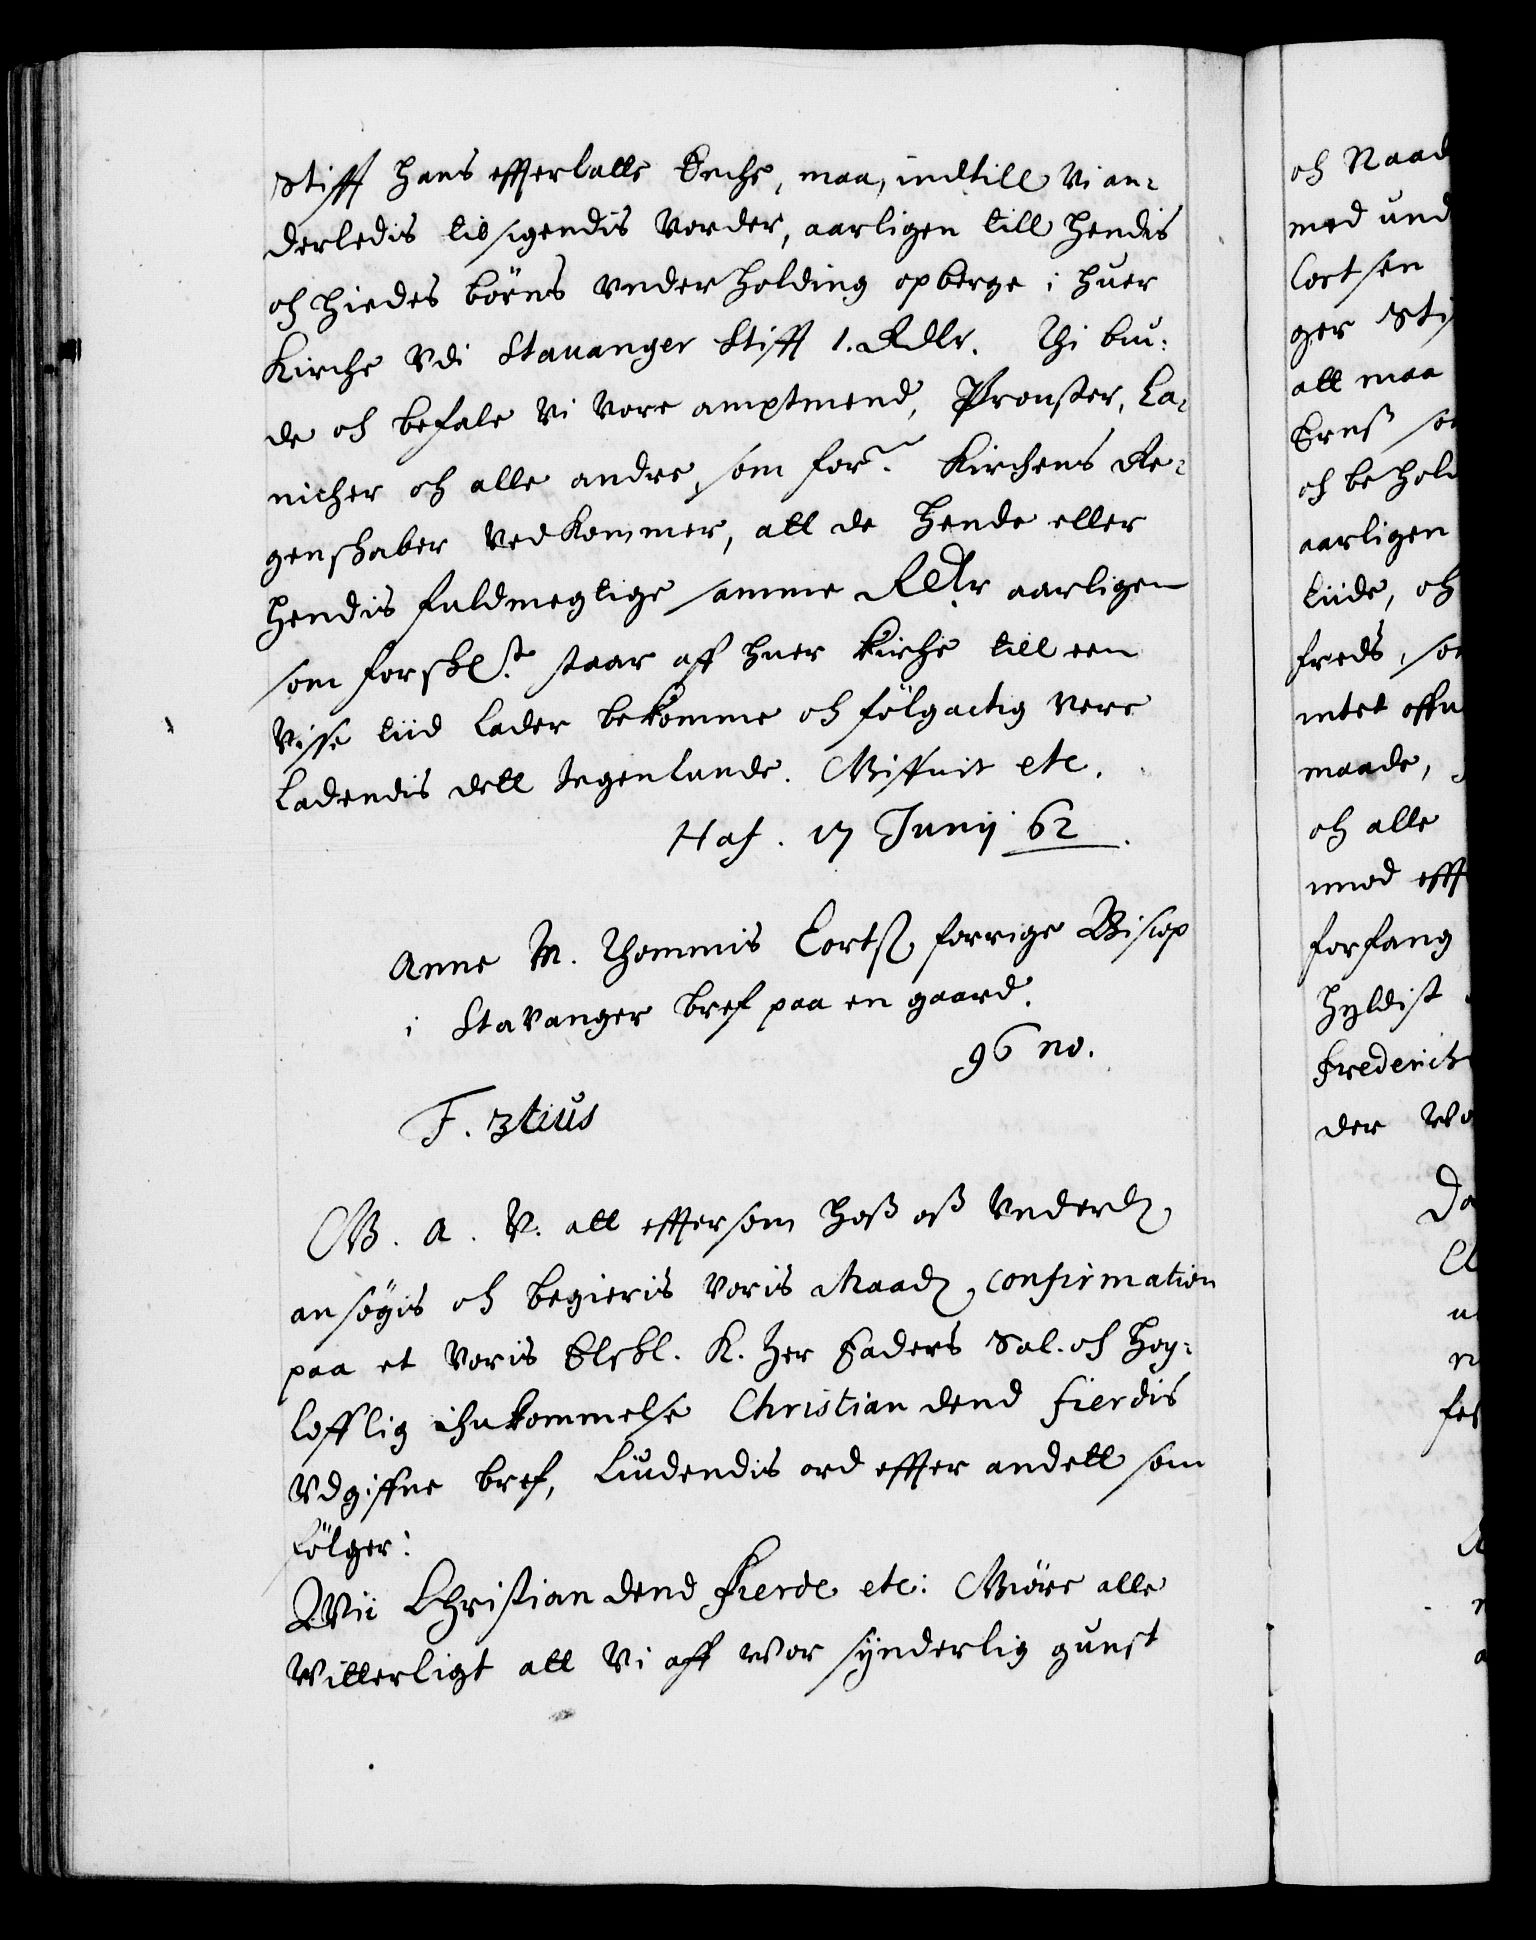 Stifft hans effterlatte Encke, maa, indtill Vi an-
derledis tilsigendis vorder, aarligen till hendis
och hindes börns underholding opberge i huer
Kirche Vdi Stauanger Stifft 1. Rdlr. Thi biu-
de och befale Vi vore amptmend, Prouster, Ca-
nicher och alle andre, som for.ne Kirchens Re-
genschaber vedkommer, att de hende eller
hendis fuldmegtige samme Rdlr aarligen
som forschr.t staar aff huer Kirche till een
visse tiid lader bekomme och fölgactig vere
Ladendis dett Ingenlunde. Giffuit etc.
Haf. 17 Junij 62.
Anne M. Thommis Cortß. forrige Biscop
i Stavanger bref paa en gaard.
96 no.
F. 3tius
G. A. V. att effter som hoß oß Vnderd.
ansögis och begieris voris Naad. confirmation
paa et voris Elskl. K. Her Faders Sal. och Høy-
lofflig ihukommelse Christian dend fierdis
Vdgiffne bref, Liudendis ord effter andett som
fölger:
Wii Christian dend Fierde etc: Giöre alle
Witterligt att Vi aff Wor synderlig gunst
och Naad
med und
Cortsen
ger Sti
att maa
Erns so
och behold
aarligen
tiide, och
freds, so
intet offu
maade,
och alle
imod efft
forfang
Hyldist
Frederich
der Wo